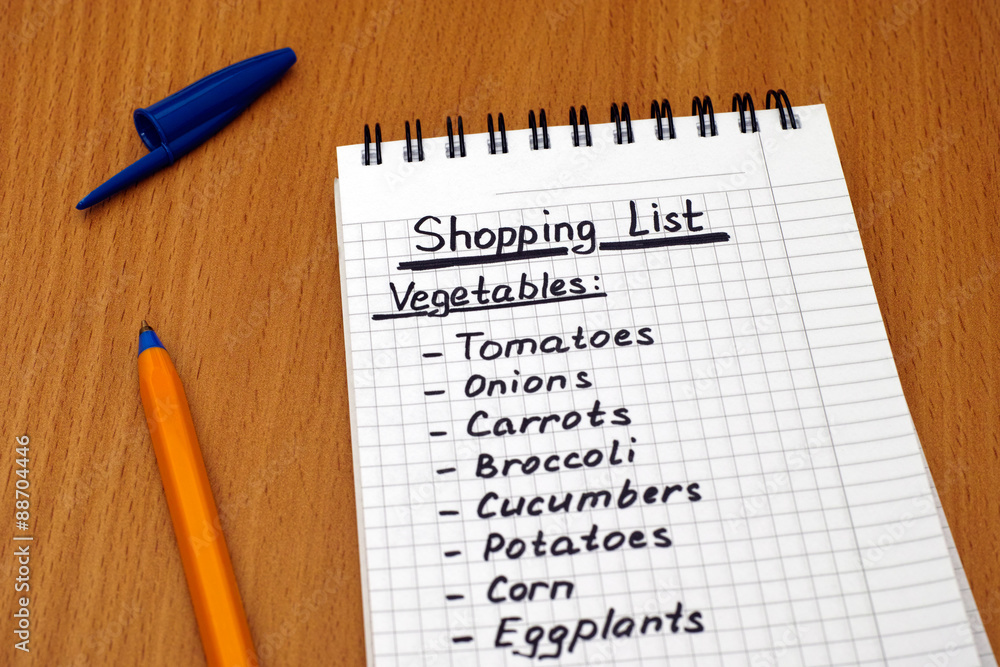 Shopping List
Vegetables:
- Tomatoes
- Onions
- Carrots
- Broccoli
- Cucumbers
- Potatoes
- Corn
- Eggplants
Adobe Stock | #88704446